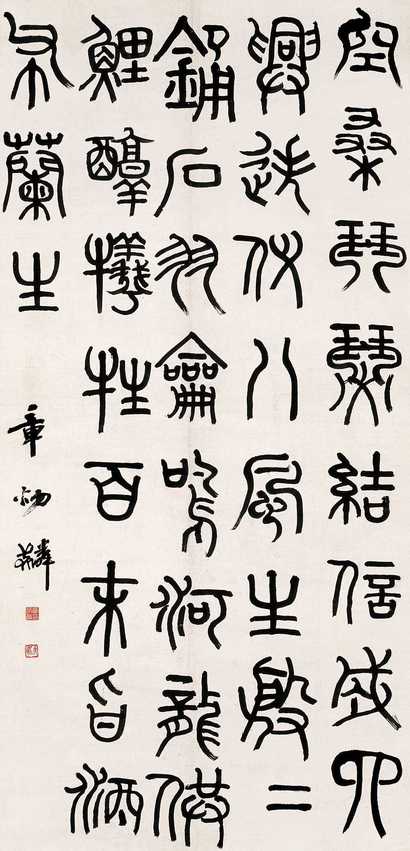 空桑琴瑟結信成四
興迭代八風生殷二
銿石羽龠鳴河龍供
鯉醇犧牲百末旨酒
布蘭生
章炳麟